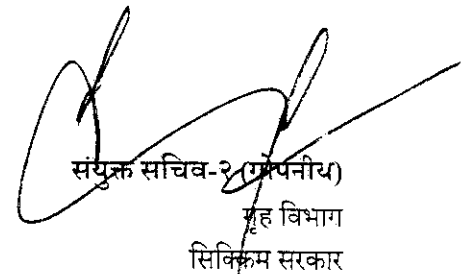 संयुक्त सचिव-२ (गोपनीय)
गृह विभाग
सिक्किम सरकार